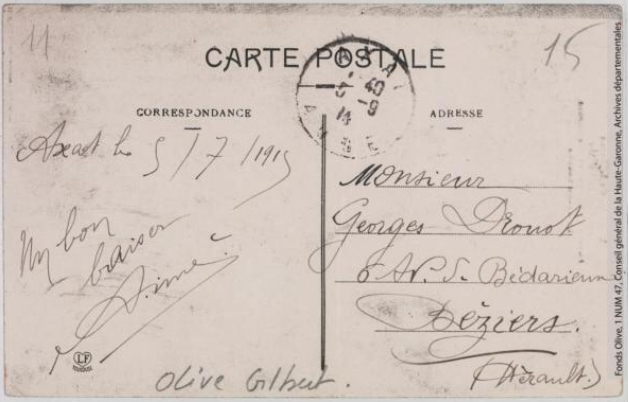 11
15
CARTE POSTALE
CORRESPONDANCE
ADRESSE
Axat le 5/7/1915
Un bon
baiser
Aimé
Monsieur
Georges Drouot
6 Av. de Bédarieux
Béziers.
(Hérault.)
LF
Olive Gilbert.
Fonds Olive, 1 NUM 47, Conseil général de la Haute-Garonne, Archives départementales